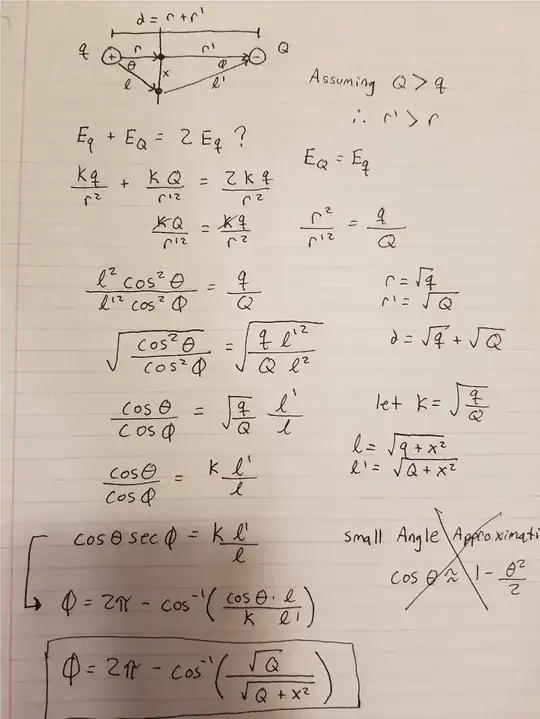 d = r + r'
q + r r' - Q
θ x φ
l l'
Assuming Q > q
∴ r' > r
E_q + E_Q = 2 E_q ?
E_Q = E_q
kq/r² + kQ/r'² = 2kq/r²
kQ/r'² = kq/r²
r²/r'² = q/Q
l² cos²θ / l'² cos²φ = q/Q
r = √q
r' = √Q
√(cos²θ / cos²φ) = √(q l'² / Q l²)
d = √q + √Q
cosθ / cosφ = √(q/Q) l'/l
let k = √(q/Q)
cosθ / cosφ = k l'/l
l = √(q + x²)
l' = √(Q + x²)
cosθ secφ = k l'/l
small Angle Approximati
cosθ ≈ 1 - θ²/2
φ = 2π - cos⁻¹(cosθ · l / k l')
φ = 2π - cos⁻¹(√Q / √(Q + x²))